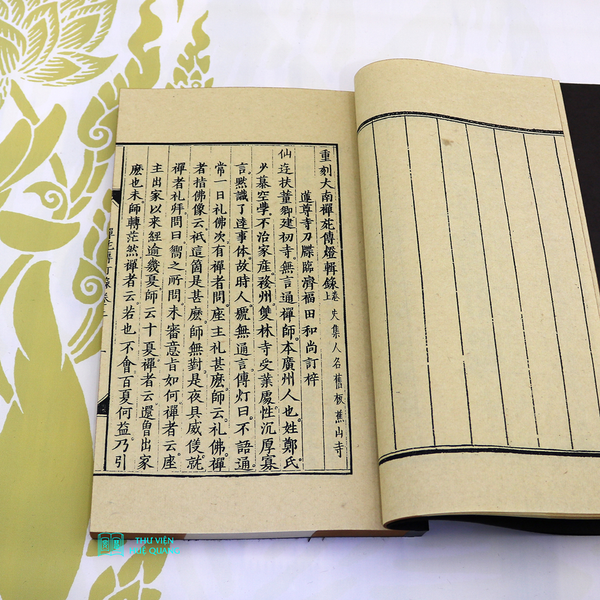 重刻大南禪苑傳燈輯錄卷上 史集人名舊板蕉山寺
蓮尊寺刀牒臨濟福田和尚訂梓
仙逰扶董鄉建初寺無言通禪師。本廣州人也。姓鄭氏。
少慕空學。不治家産。務州雙林寺受業。處性沉厚寡
言。黙識了達事休。故時人號無通言。傳灯曰。不語通
常一日礼佛次。有禪者問。座主礼甚麽。師云。礼佛。禪
者指佛像云。祗這箇是甚麽。師無對。是夜具威儀。就
禪者礼拜問曰。嚮之所問。未審意旨如何。禪者云。座
主出家以來經逾幾夏。師云十夏。禪者云。還曽出家
麽也未。師轉茫然。禪者云。若也不會。百夏何益。乃引
THƯ VIỆN
HUỆ QUANG